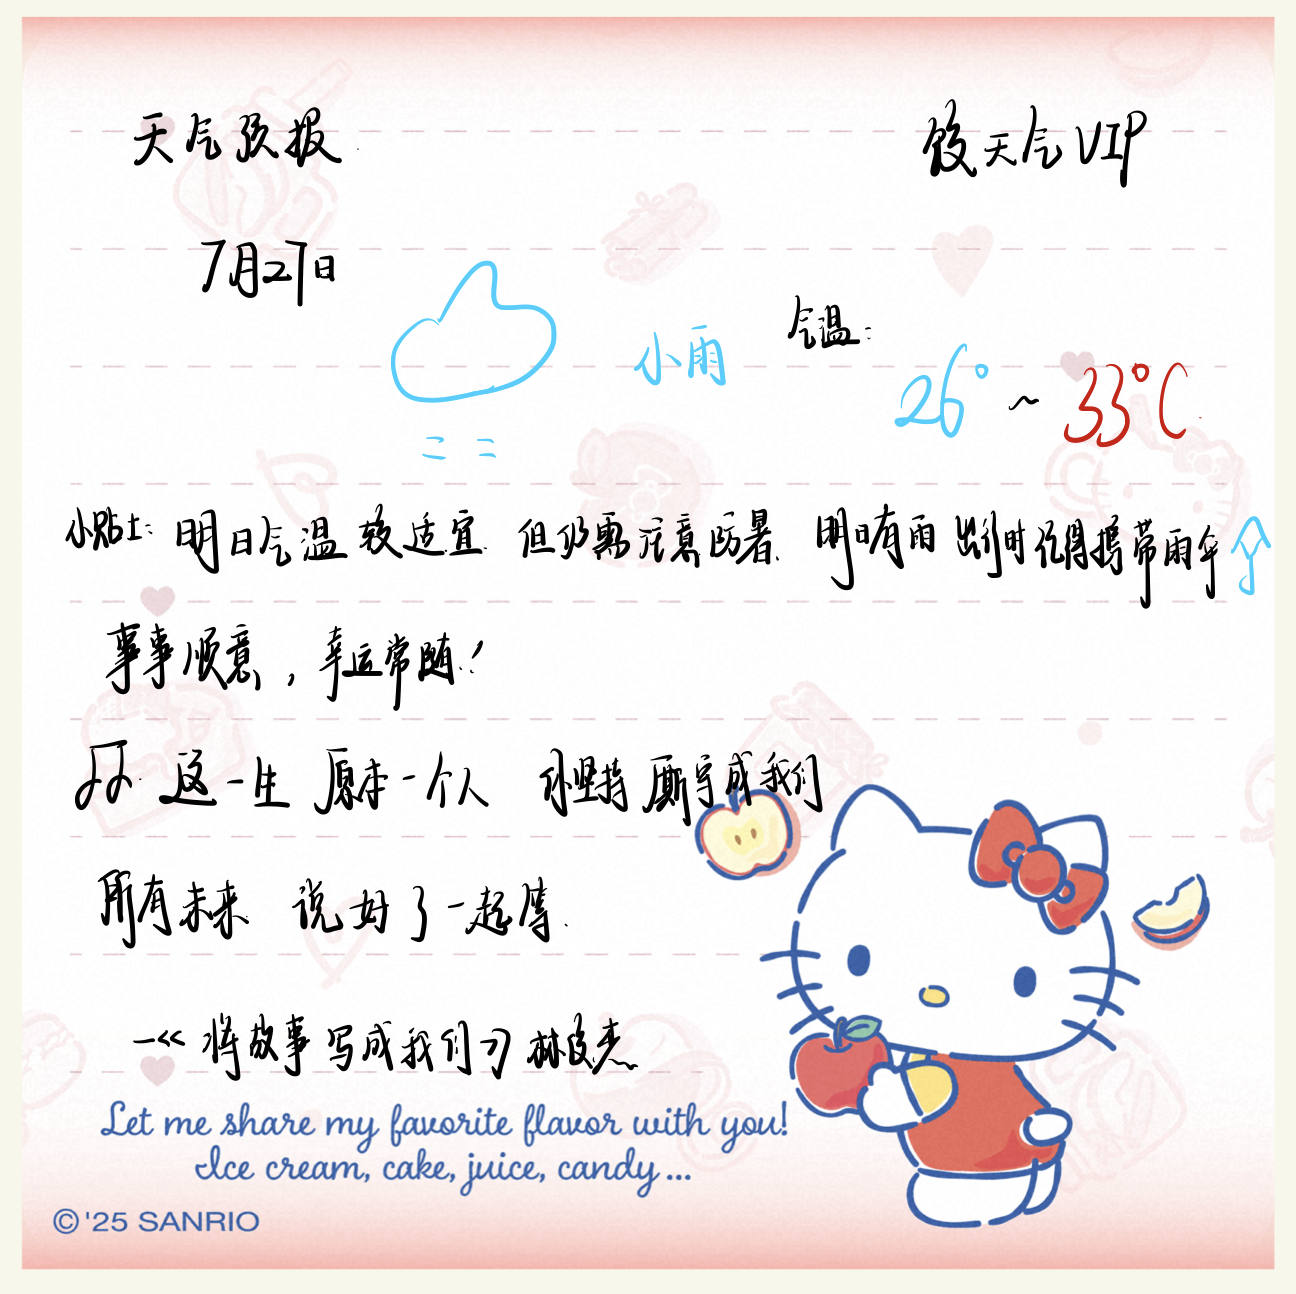 天气预报
饺天气VIP
7月27日
小雨
气温:
26° ~ 33°C
小贴士: 明日气温较适宜 但仍需注意防暑 明日有雨 出行时记得携带雨伞
事事顺意,幸运常随!
这一生 原本一个人 你坚持厮守成我们
所有未来 说好了一起等
—《将故事写成我们》林俊杰
Let me share my favorite flavor with you!
Ice cream, cake, juice, candy...
© '25 SANRIO